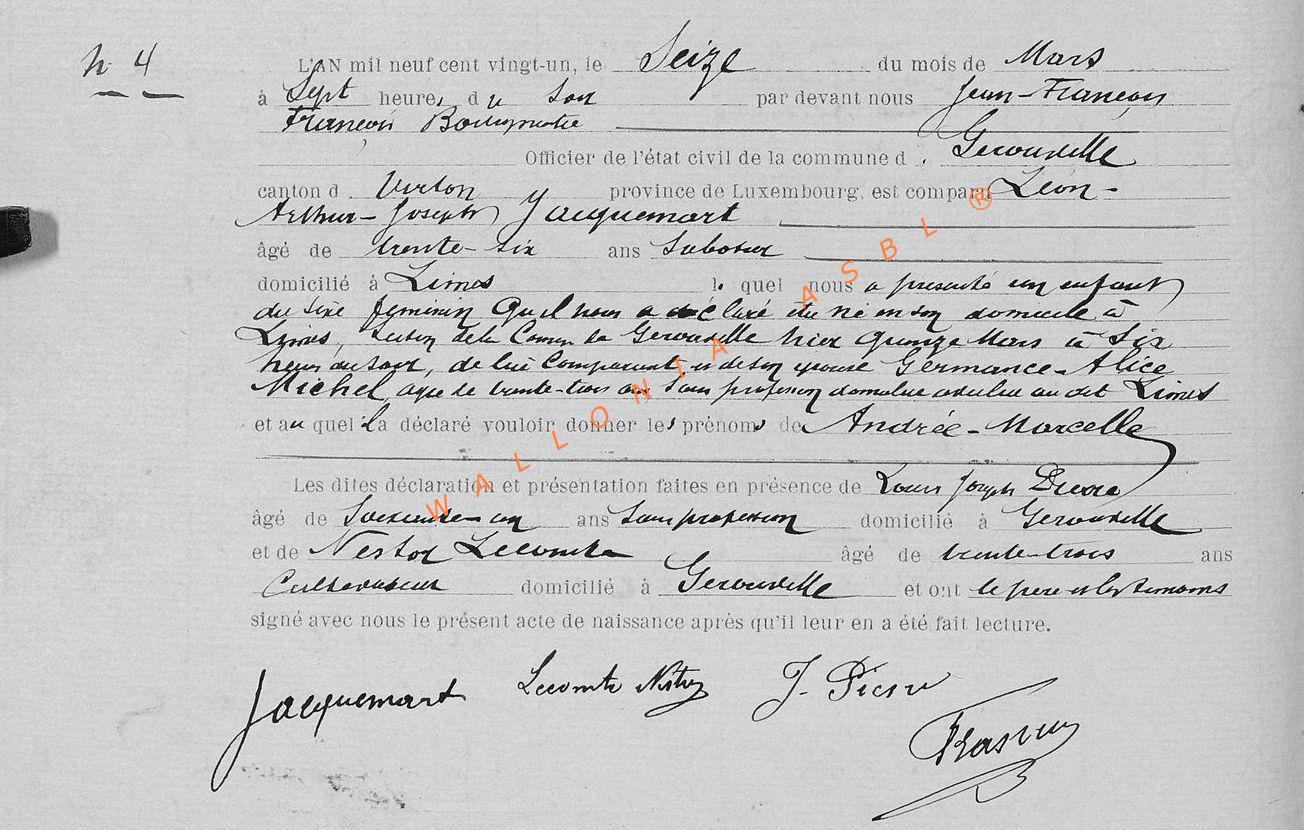 N° 4
L'AN mil neuf cent vingt-un, le Seize du mois de Mars
à Sept heures du soir par devant nous Jean-François
François
Officier de l'état civil de la commune d. Gerouville
canton d Virton province de Luxembourg, est comparu Léon-
Arthur-Joseph Jacquemart
âgé de trente-six ans Sabotier
domicilié à Limes lequel nous a présenté un enfant
du sexe féminin qu'il nous a déclaré être né en son domicile à
Limes, section de la Commune de Gerouville hier quinze Mars à Six
heures du soir, de lui comparant, et de son épouse Germance-Alice
Michel, agée de trente-trois ans, sans profession domiciliée au dit Limes
et auquel il a déclaré vouloir donner les prénoms de Andrée-Marcelle
Les dites déclaration et présentation faites en présence de Louis Joseph
âgé de Soixante un ans Sans profession domicilié à Gerouville
et de Nestor Lecomte âgé de trente-trois ans
Cultivateur domicilié à Gerouville et ont le père et les témoins
signé avec nous le présent acte de naissance après qu'il leur en a été fait lecture.
Jacquemart Lecomte Nestor J.
WALLONIA ASBL ®